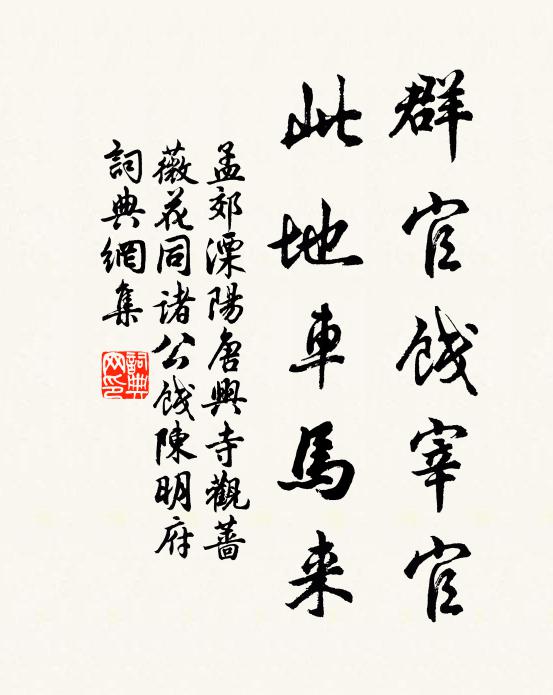 群官餞宰官
此地車馬来
孟郊溧陽唐興寺觀薔
薇花同諸公餞陳明府
詞典網集
詞典
网印